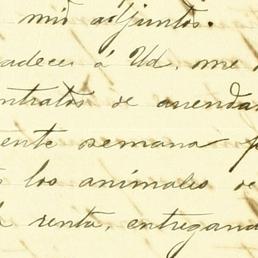 mis adjuntos.
adecer á Ud. me
ntratos de arrenda
ente semana
los animales de
renta, entregand